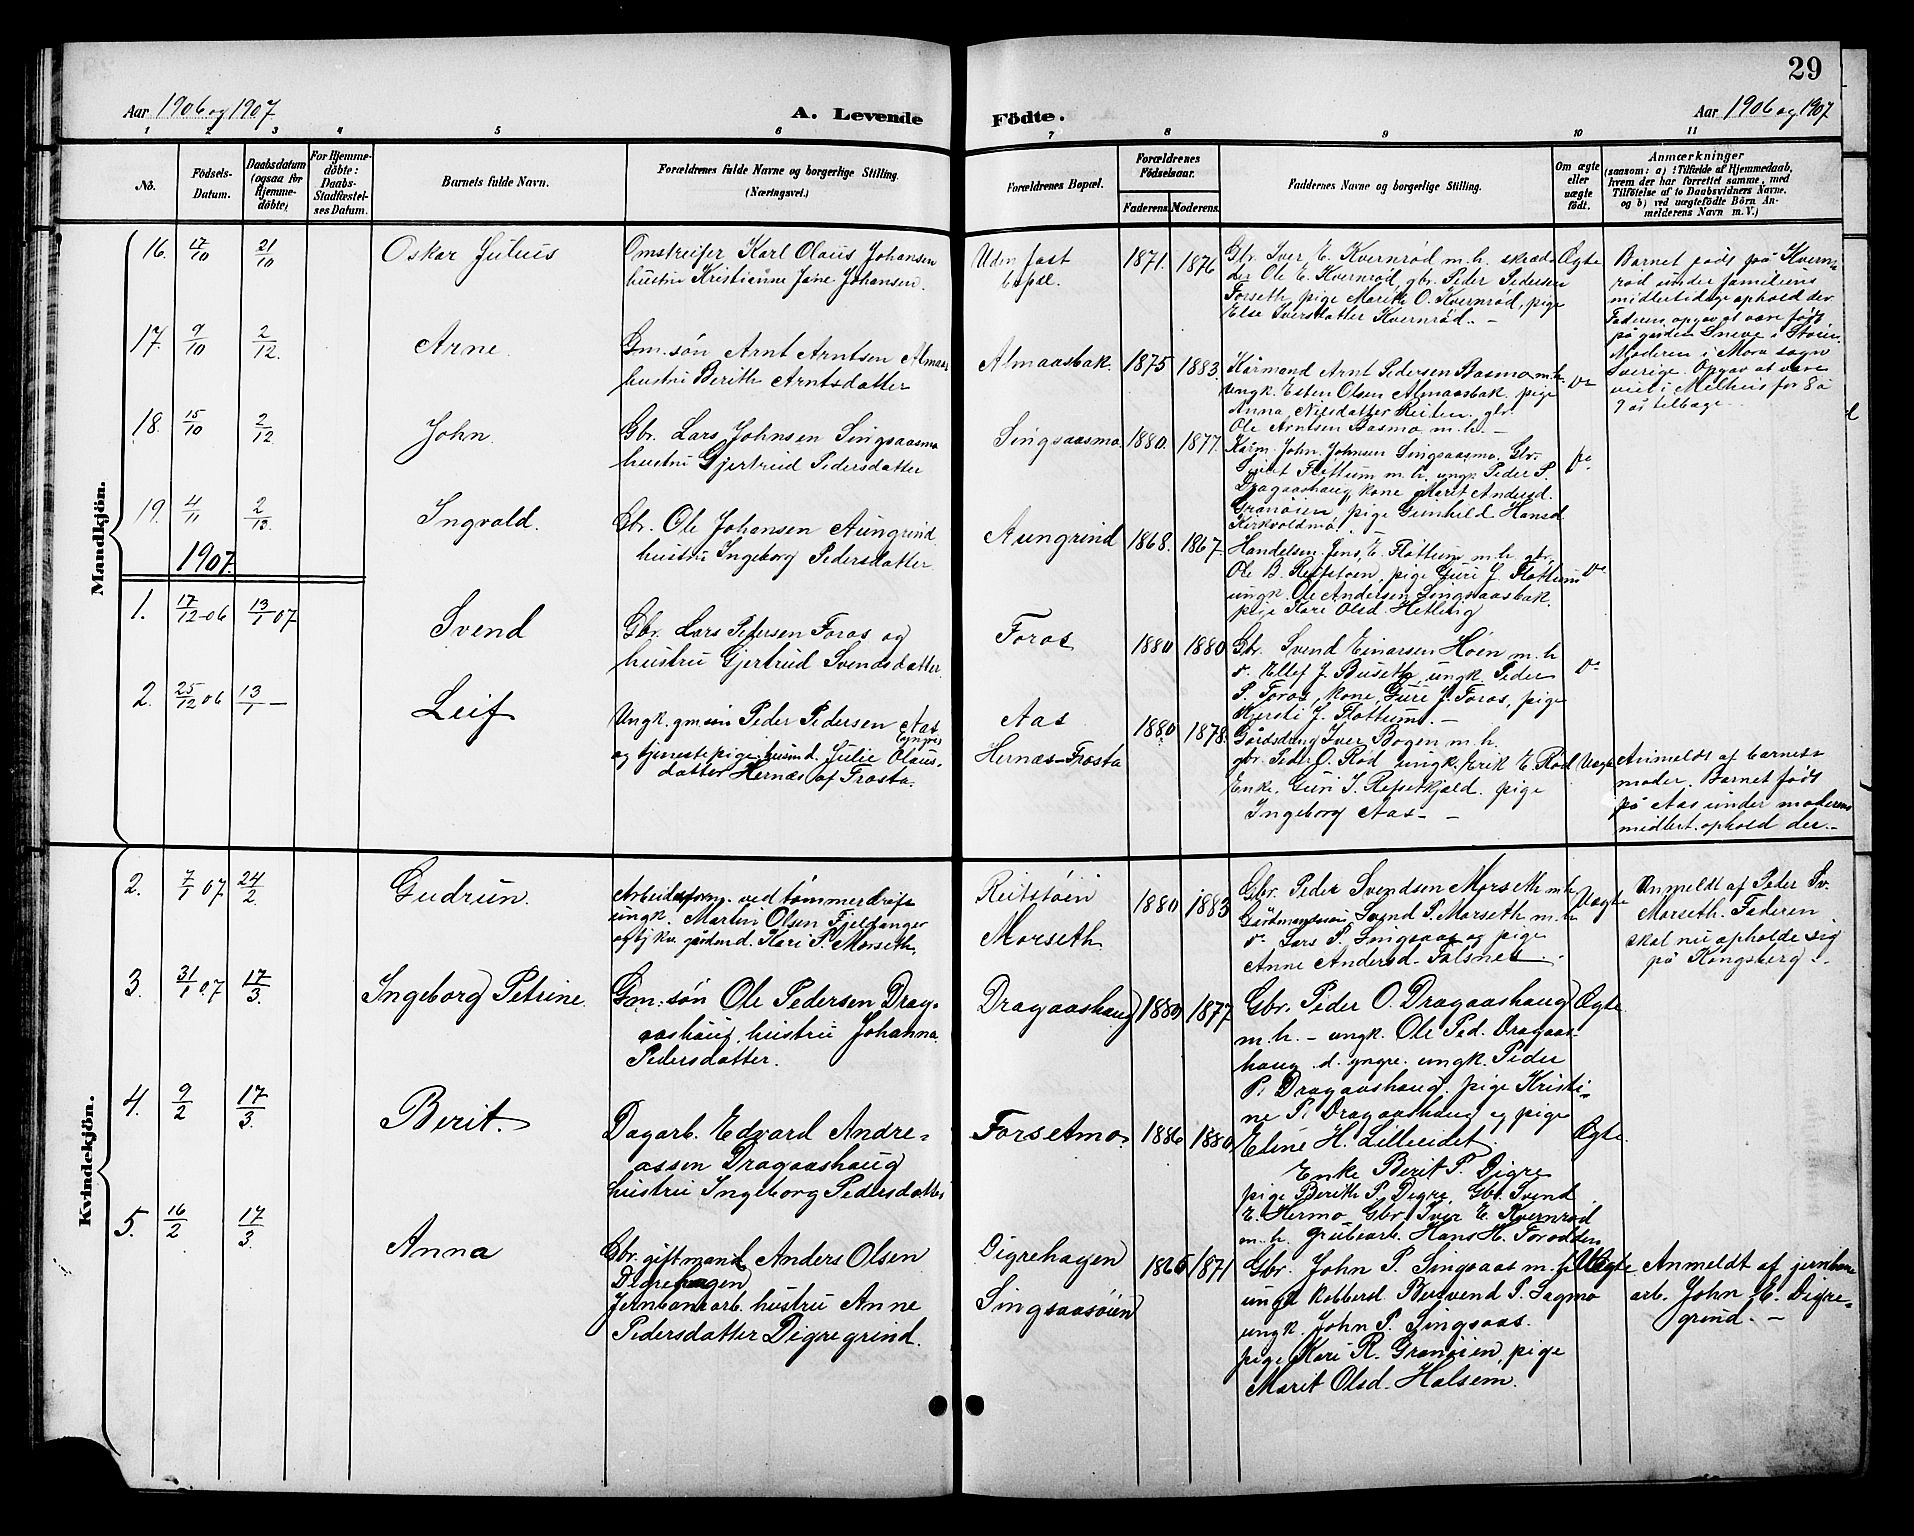 29
Aar 1906 og 1907
A. Levende
Födte.
Aar 1906 og 1907
1 2 3 4 5 6 7 8 9 10 11
No.
Födsels-
Datum.
Daabsdatum
(ogsaa for
Hjemme-
döbte)
For Hjemme-
döbte:
Daabs-
Stadfæstel-
ses Datum.
Barnets fulde Navn.
Forældrenes fulde Navne og borgerlige Stilling.
(Næringsvei.)
Forældrenes Bopæl.
Forældrenes
Födselsaar.
Faderens.
Moderens.
Faddernes Navne og borgerlige Stilling.
Om ægte
eller
uægte
födt.
Anmærkninger
(saasom: a) i Tilfælde af Hjemmedaab,
hvem der har forrettet samme, med
Tilföielse af to Daabsvidners Navne,
og b) ved uægtefödte Börn An-
melderens Navn m. V.)
Mandkjön.
16. 17/10 21/10
Oskar Julius
Omstreifer Karl Olaus Johansen
hustru Kristianne Jane Johansen.
Uden fast
bopæl.
1871. 1876
Gbr. Iver E. Kvernrød m.h. skræd
der Ole E. Kvernrød, gbr. Peder Pedersen
Forseth, pige Marit O. Kvernrød, pige
Else Iversdatter Kvernrød. -
Ægte
Barnet født på Kvern
rød under familiens
midlertidige ophold der
Faderen opgav at være født
på gården Sneve i Støren
Moderen i Mora sogn
Sverige. Opgav at være
viet i Melhus for 8 a
9 år tilbage.
17. 9/10 2/12.
Arne.
Gm. søn Arnt Arntsen Almaas
hustru Berith Arntsdatter
Almaasbak.
1875 1883.
Kårmand Arnt Pedersen Basmo m.h.
ungk. Esten Olsen Almaasbak, pige
Anna Nilsdatter Reiten, gbr.
Ole Arntsen Basmo m.h. -
do
18. 15/10 2/12
John.
Gbr. Lars Johnsen Singsaasmo
hustru Gjertrud Pedersdatter
Singsaasmo
1880. 1877.
Kårm. John Johnsen Singsaasmo, Gbr.
Flottum m.h. ungk. Peder P.
Dragaashaug, kone Marit Andersd.
Granøien, pige Gunhild Hansd.
Kirkvoldmo.
do
19. 4/11 2/12
Ingvald.
Gbr. Ole Johansen Aungrind
hustru Ingeborg Pedersdatter
Aungrind
1868. 1867.
Handelsm. Jens E. Fløttum m.h. gbr.
Ole B. Reitstøen, pige Guri J. Fløttum
ungk. Ole Andersen Singsaasbak.
pige Kari Olsd.
do
1907.
1. 17/12-06 13/1 07
Svend
Gbr. Lars Petersen Foros og
hustru Gjertrud Svendsdatter.
Foros
1880 1880
Gbr. Svend Einarsen Høen m.h
do Ellef J. Buseth, ungk. Peder
P. Foros, kone Guri J. Foros, pige
Kjersti J. Fløttum. -
do
2. 25/12 06 13/1 -
Leif
Ungk. gmsøn Peder Pedersen Aas
(yngre)
og tjenestepige husmd. Julie Olaus-
datter Hernæs af Frosta.
Aas
Hernæs-Frosta
1880 1878.
Gårdsdreng Iver Bogen m.h.
gbr. Peder O. Rød ungk. Erik E. Rød
Enke. Guri J. Refsetkjøld. pige
Ingeborg Aas- -
Uægte
Anmeldt af barnets
moder. Barnet født
på Aas under moderens
midlert. ophold der.-
Kvindekjön.
2. 7/1 07 24/2
Gudrun.
Arbeidsform. ved tømmerdrift
ungk. Martin Olsen Fjeldanger
og tj.kv. gårdmd. Kari P. Morseth.
Reitstøen
Morseth
1880 1883
Gbr. Peder Svendsen Morseth m.h.
Gårdmandssøn Svend P. Morseth m.h
do Lars P. Singsaas og pige
Anne Andersd. Talsnes. -
Uægte
Anmeldt af Peder Sv.
Morseth. Faderen
skal nu opholde sig
på Kongsberg.-
3. 31/1 07 17/3
Ingeborg Petrine.
Gm. søn Ole Pedersen Drag-
aashaug, hustru Johanna
Pedersdatter.
Dragaashaug
1880 1877
Gbr. Peder O. Dragaashaug
m.h. - ungk. Ole Ped. Dragaas-
haug d. yngre, ungk. Peder
P. Dragaashaug, pige Kristi-
ne P. Dragaashaug og pige
Eline H. Lillieidet.
Ægte
4. 9/2 17/3.
Berit.
Dagarb. Edvard Andre-
assen Dragaashaug
hustru Ingeborg Pedersdatter
Forsetmo.
1886 1880
Enke Berit P. Digre
pige Berith P. Digre, Gbr. Svend
E. Hermo, Gbr. Iver E. Kvernrød
m.h. grubearb. Hans H. Forodden
Ægte
5. 16/2 17/3.
Anna
Gbr. giftmand Anders Olsen
Digrehagen
Jernbanearb. hustru Anne
Pedersdatter Digregrind.
Digrehagen
Singsaasøien
1865 1871
Gbr. John P. Singsaas m.h
ungk. Svend P. Sagmo
ungk. John P. Singsaas.
pige Kari R. Granøien, pige
Marit Olsd. Halsem.
Uægte
Anmeldt af jernbane
arb. John E. Digre-
grind. -